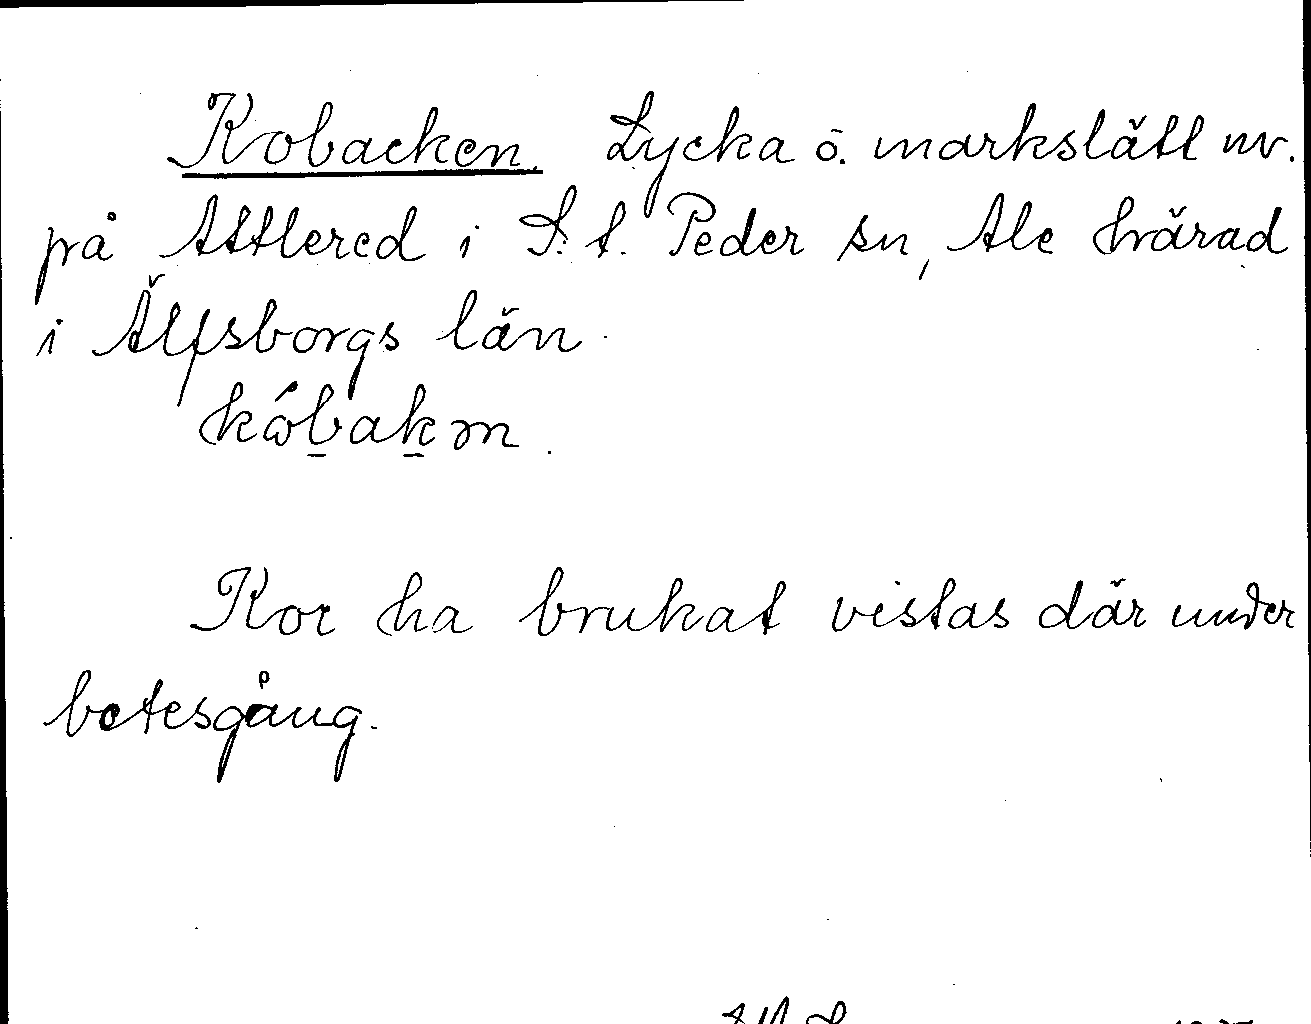 Kobacken. Lycka o. markslätt nv.
på Attlered i S:t. Peder sn, Ale härad
i Älfsborgs län.
Kor ha brukat vistas där under
betesgång.